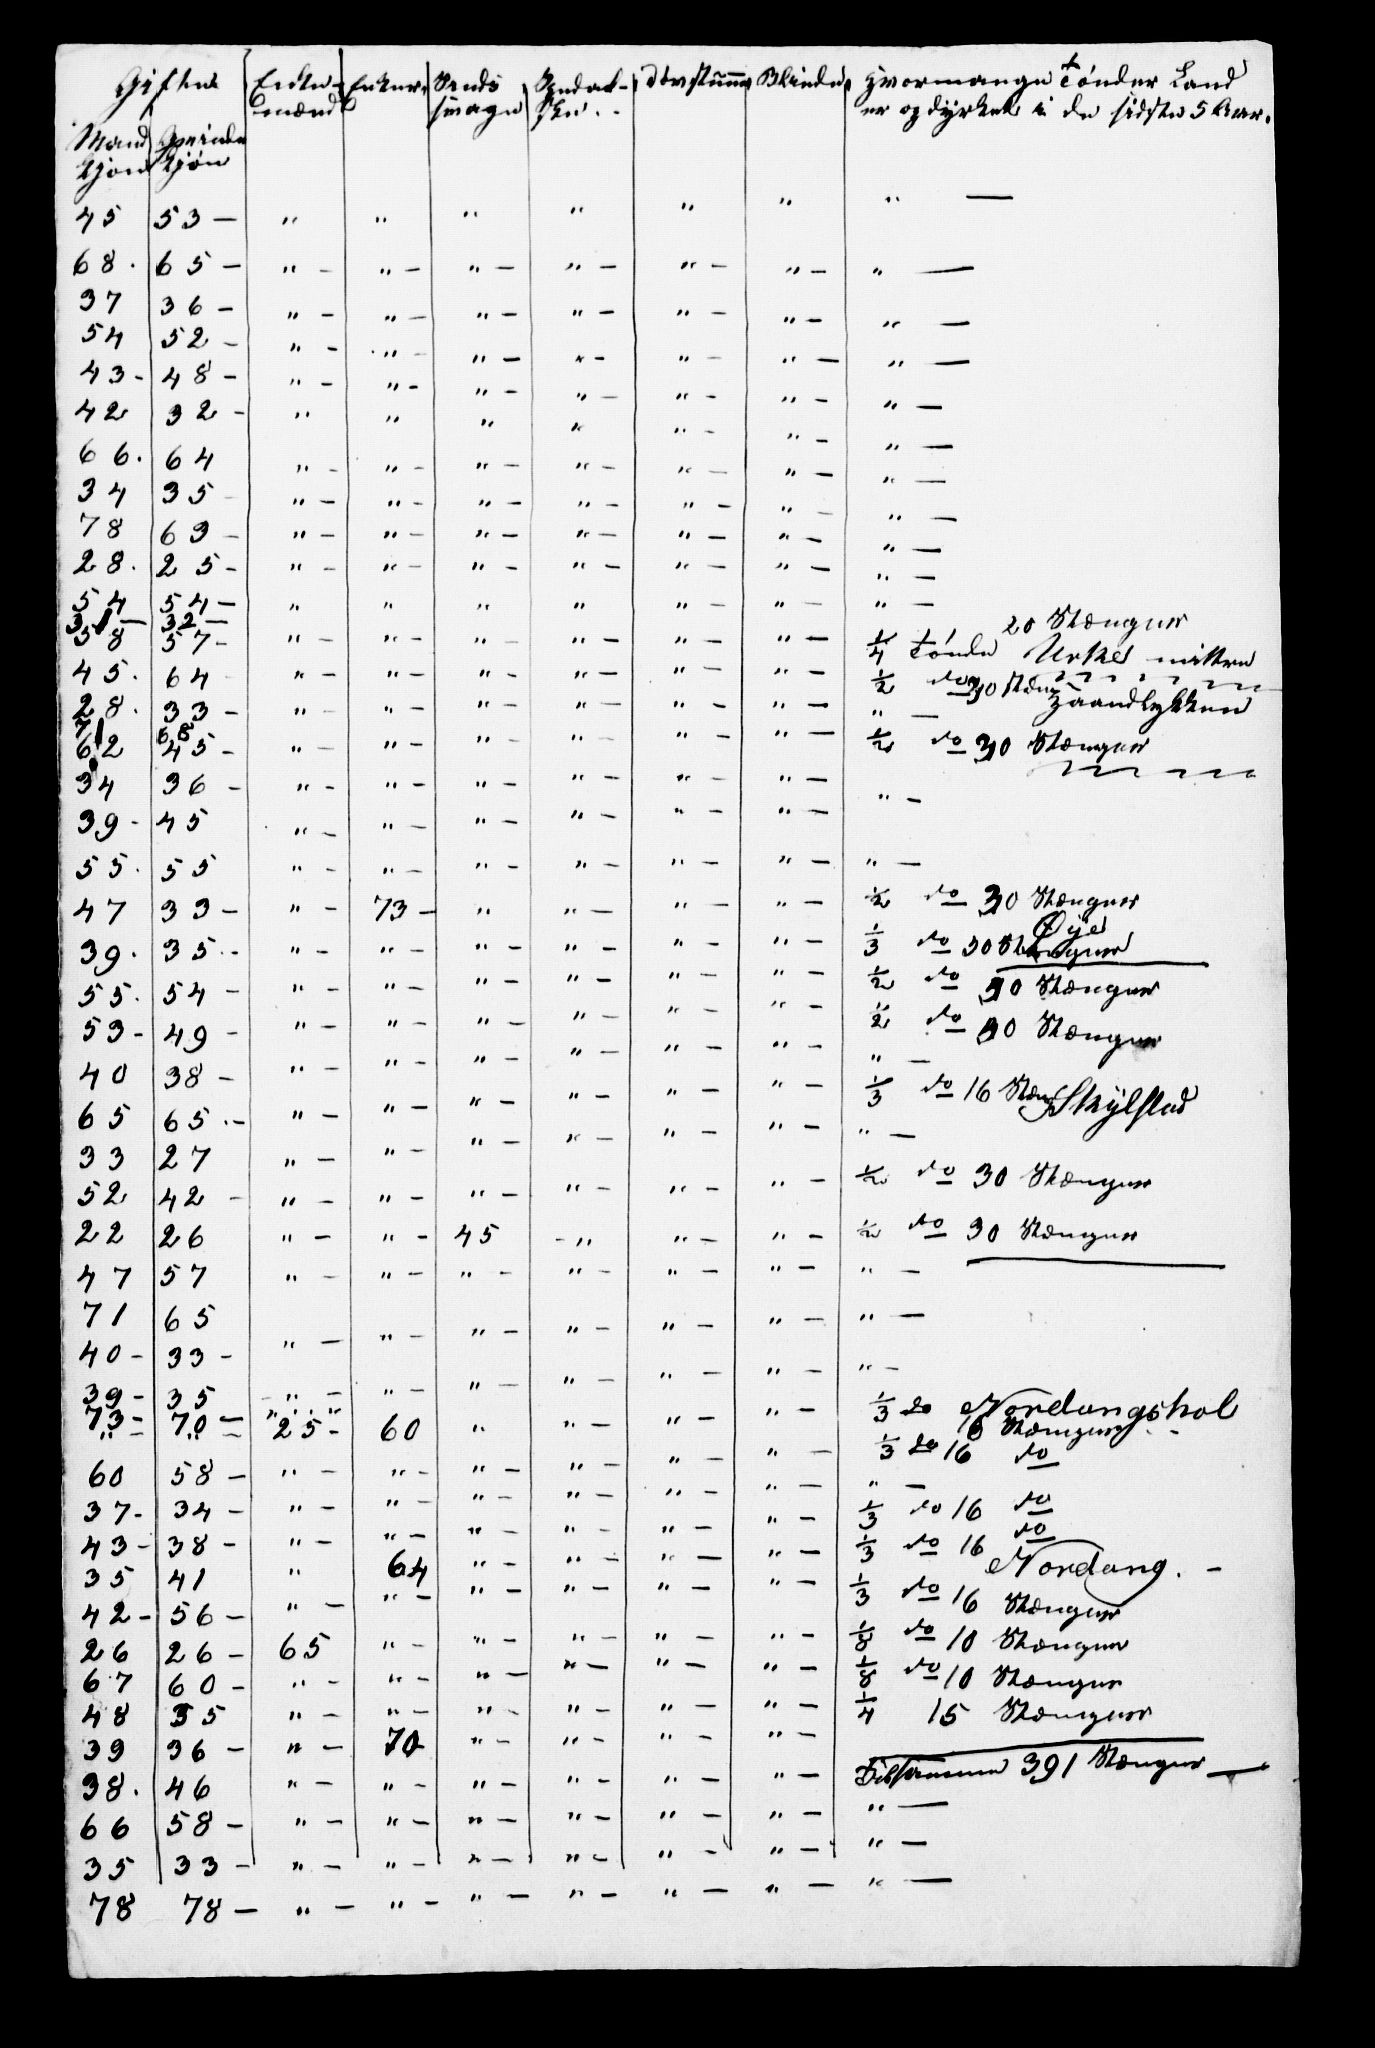 Gifte Enke- Enker. Sinds Spedal- døvstumme Blinde, Hvormange Tønder Land
mænd svage ske .. er opdyrket i de sidste 5 Aar.
Mand Qvinde
Kjøn Kjøn
45 53 – " " " " " " " —
68. 65 – " – " – " – " – " – " – " —
37 36 – " – " – " – " – " – " – " —
54 52 – " – " – " – " – " – " – " —
43 – 48 – " – " – " – " – " – " – " —
42 32 – " " " " " – " – " —
66. 64 " – " – " – " – " – " – " —
34 35 – " – " – " – " – " – " – " —
78 69 – " – " – " – " – " – " – " —
28. 25 – " – " – " – " – " – " – " —
54 54 – " " " " " – " – " —
31 – 32 –
20 Stænger
58 57 – " – " – " – " – " – " – 1/4 Tønde Urke mittre
45. 64 " – " – " – " – " – " – 1/2 do 30 Stæn
28. 33 – " – " – " – " – " – " – " — Haandlykken
71 68
62 45 – " – " – " – " – " – " – 1/2 do 30 Stænger
34 36 – " – " – " – " – " – " – " –
39 – 45 " – " – " – " – " – " –
55. 55 " – " – " – " – " – " – " —
47 33 – " – 73 – " " – " – " – 1/2 do 30 Stænger
Øye
39. 35 – " – " – " – " – " – " – 1/3 do 30 Stænger
55. 54 – " – " – " – " – " – " – 1/2 do 30 Stænger
53 – 49 – " – " – " – " – " – " – 1/2 do 30 Stænger
40 38 – " – " – " – " – " – " – " –
65 65. – " – " – " – " – " – " – 1/3 do 16 Stæn Skylstad
33 27 " – " – " – " – " – " – " —
52 42 – " – " – " – " – " – " – 1/2 do 30 Stænger
22 26 " – " – 45 – " " – " – 1/2 do 30 Stænger
47 57 " – " – " – " – " – " – " —
71 65 " – " – " – " – " – " – " —
40 – 33 –
39 – 35 – " – " – " – " – " – " – " –
73 – 70 – 25 – 60 " " – " – " – 1/3 do Nordangshol
16 Stænger
60 58 – " – " – " – " – " – " – 1/3 do 16 do
37 – 34 – " – " – " – " – " – " – " –
43 – 38 – " – " – " – " – " – " – 1/3 do 16 do
35 41 " 64 " – " – " – " – 1/3 do 16 do
Nordang. –
42 – 56 – " – " – " – " – " – " – 1/3 do 16 Stænger
26 26 – 65 " – " – " – " – " – 1/8 do 10 Stænger
67 60 – " – " – " – " – " – " – 1/8 do 10 Stænger
48 35 " – " – " – " – " – " – 1/4 15 Stænger
39 36 – " – 70 " – " – " – " –
38. 46 " – " – " – " – " – " – Tilsammen 391 Stænger —
66 58 – " – " – " – " – " – " – " —
35 33 – " – " – " – " – " – " – " —
78 78 – " – " – " – " – " – " – " —